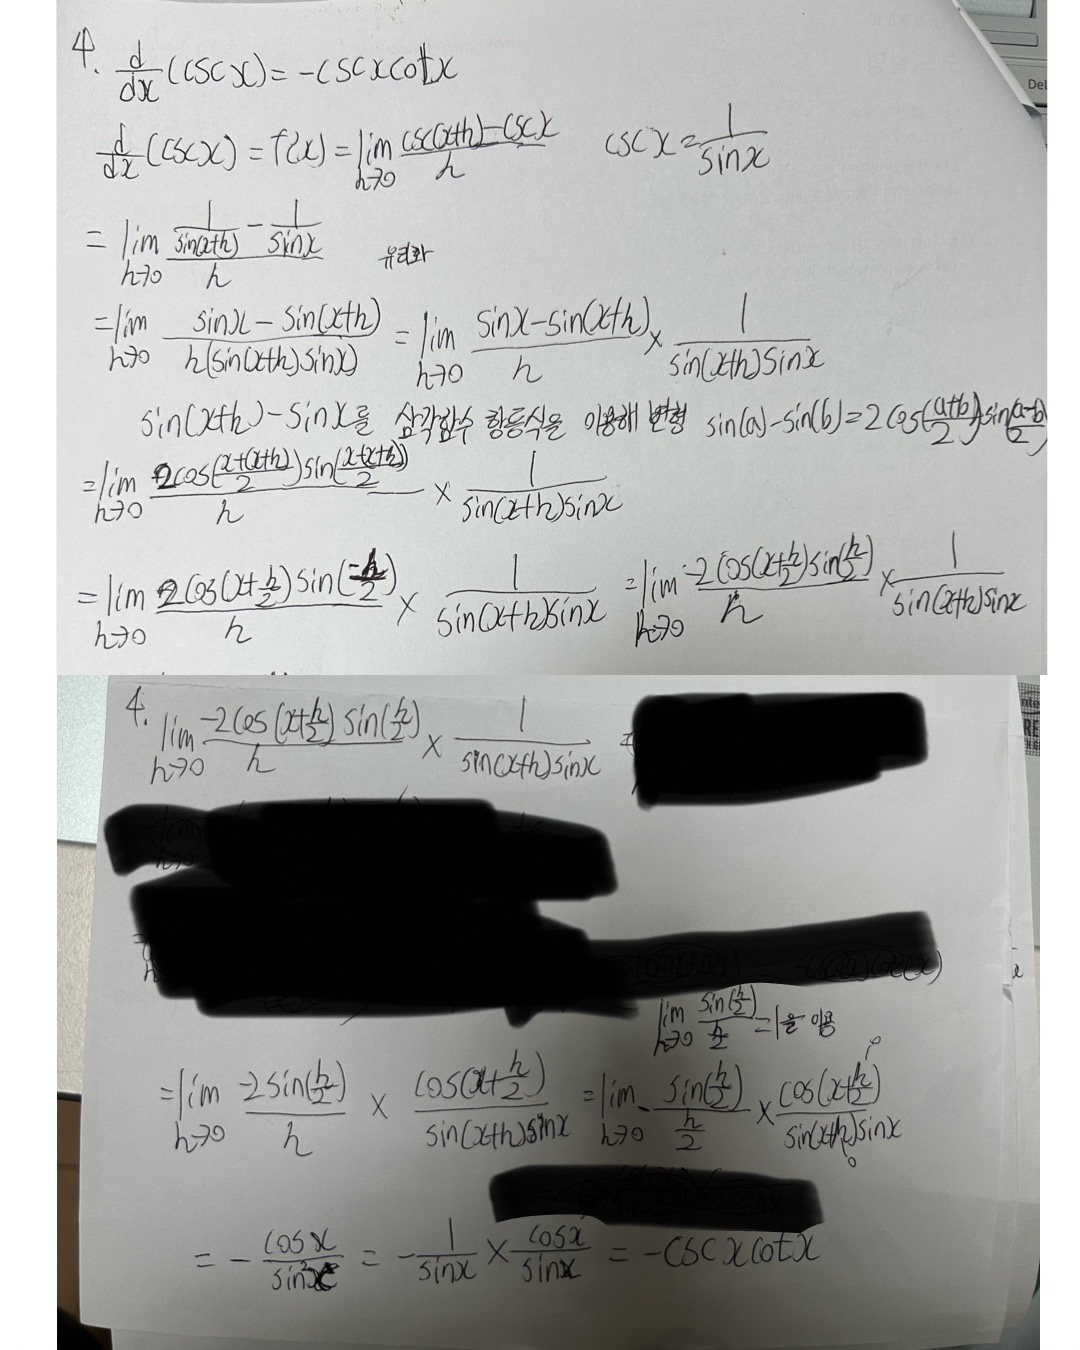 4. d/dx (csc x) = -csc x cot x
d/dx (csc x) = f'(x) = lim h→0 (csc(x+h) - csc x)/h csc x = 1/sin x
= lim h→0 (1/sin(x+h) - 1/sin x)/h 유리화
= lim h→0 (sin x - sin(x+h))/(h(sin(x+h) sin x)) = lim h→0 (sin x - sin(x+h))/h × 1/(sin(x+h) sin x)
sin(x+h) - sin x를 삼각함수 항등식을 이용해 변형 sin(a) - sin(b) = 2 cos((a+b)/2) sin((a-b)/2)
= lim h→0 (2cos((x+(x+h))/2) sin((x-(x+h))/2))/h × 1/(sin(x+h) sin x)
= lim h→0 (2cos(x+h/2) sin(-h/2))/h × 1/(sin(x+h) sin x) = lim h→0 (-2cos(x+h/2) sin(h/2))/h × 1/(sin(x+h) sin x)
Del
4. lim h→0 (-2cos(x+h/2) sin(h/2))/h × 1/(sin(x+h) sin x) =
lim h→0 sin(h/2)/(h/2) = 1을 이용
= lim h→0 (-2 sin(h/2))/h × cos(x+h/2)/(sin(x+h) sin x) = lim h→0 - sin(h/2)/(h/2) × cos(x+h/2)/(sin(x+h) sin x)
0
0
= - cos x/sin²x = - 1/sin x × cos x/sin x = -csc x cot x